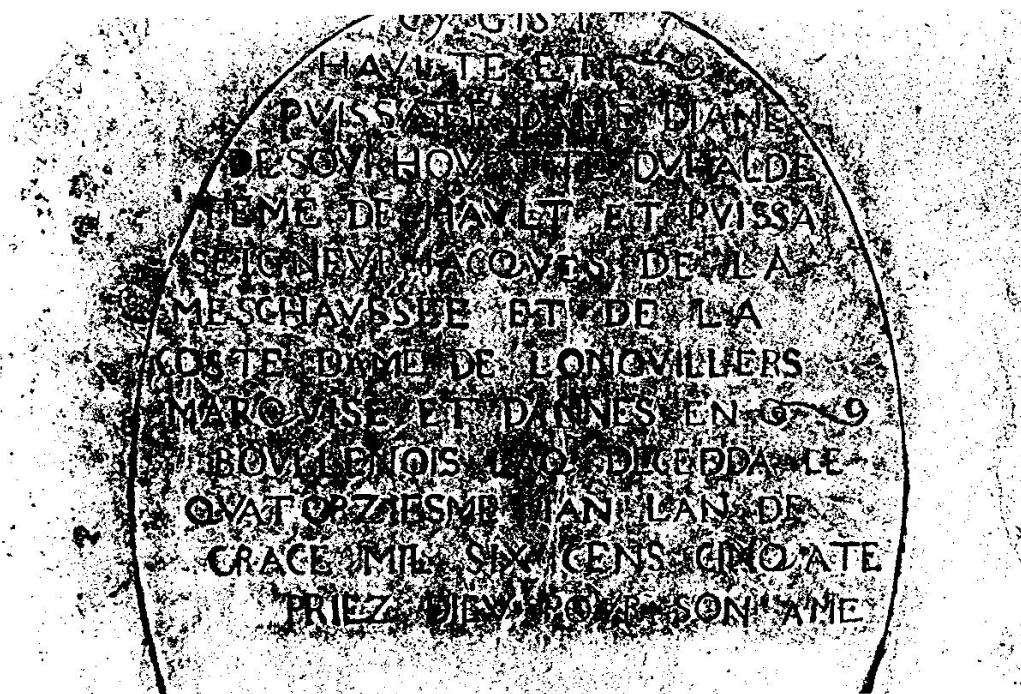 CY GIST
HAVLTE ET
PVISSATE DAME DIANE
DESOVRHOVETTE DVHALDE
FEME DE HAVLT ET PVISSA
SEIGNEVR JACQVES DE LA
MESCHAVSSEE ET DE LA
COSTE DAME DE LONQVILLIERS
MARQVISE ET DANNES EN
BOVLLENOIS LAQ DECEDDA LE
QVATORZIESME IAN LAN DE
GRACE MIL SIX CENS CINQVATE
PRIEZ DIEV POVR SON AME